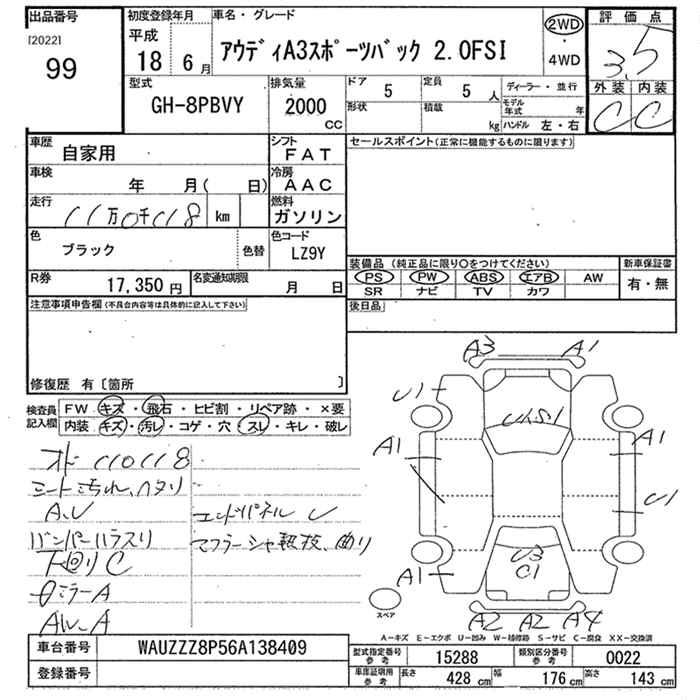 出品番号
[2022]
99
初度登録年月
平成
18 6月
車名・グレード
アウディA3スポーツバック 2.0FSI
2WD
・
4WD
評価点
3.5
外装 内装
C C
型式
GH-8PBVY
排気量
2000
CC
ドア
5
定員
5 人
形状
積載
kg
ディーラー・並行
モデル年式 年
ハンドル 左・右
車歴
自家用
シフト
FAT
車検
年 月( 日)
冷房
AAC
走行
11万0千118 km
燃料
ガソリン
色
ブラック
色替
色コード
LZ9Y
R券
17,350 円
名変通知期限
月 日
セールスポイント(正常に機能するものに限ります)
装備品 (純正品に限り○をつけてください)
PS PW ABS エアB AW
SR ナビ TV カワ
新車保証書
有・無
後日品
注意事項申告欄(不具合内容等は具体的に記入して下さい)
修復歴 有〔箇所 〕
検査員記入欄
FW キズ・飛石・ヒビ割・リペア跡・×要
内装 キズ・汚レ・コゲ・穴・スレ・キレ・破レ
オド 110118
シート汚れ、ヘタリ
A.U
バンパーハラスリ
下回りC
ミラーA
AW-A
エンドパネル U
マフラー
曲り
A3 A1
U1
A1
A1
U1
A1
U3
C1
A2 A2 A4
スペア
A-キズ E-エクボ U-凹み W-補修跡 S-サビ C-腐食 XX-交換済
車台番号
WAUZZZ8P56A138409
登録番号
型式指定番号
参考
15288
類別区分番号
参考
0022
車庫証明用
参考
長さ 428 cm 幅 176 cm 高さ 143 cm